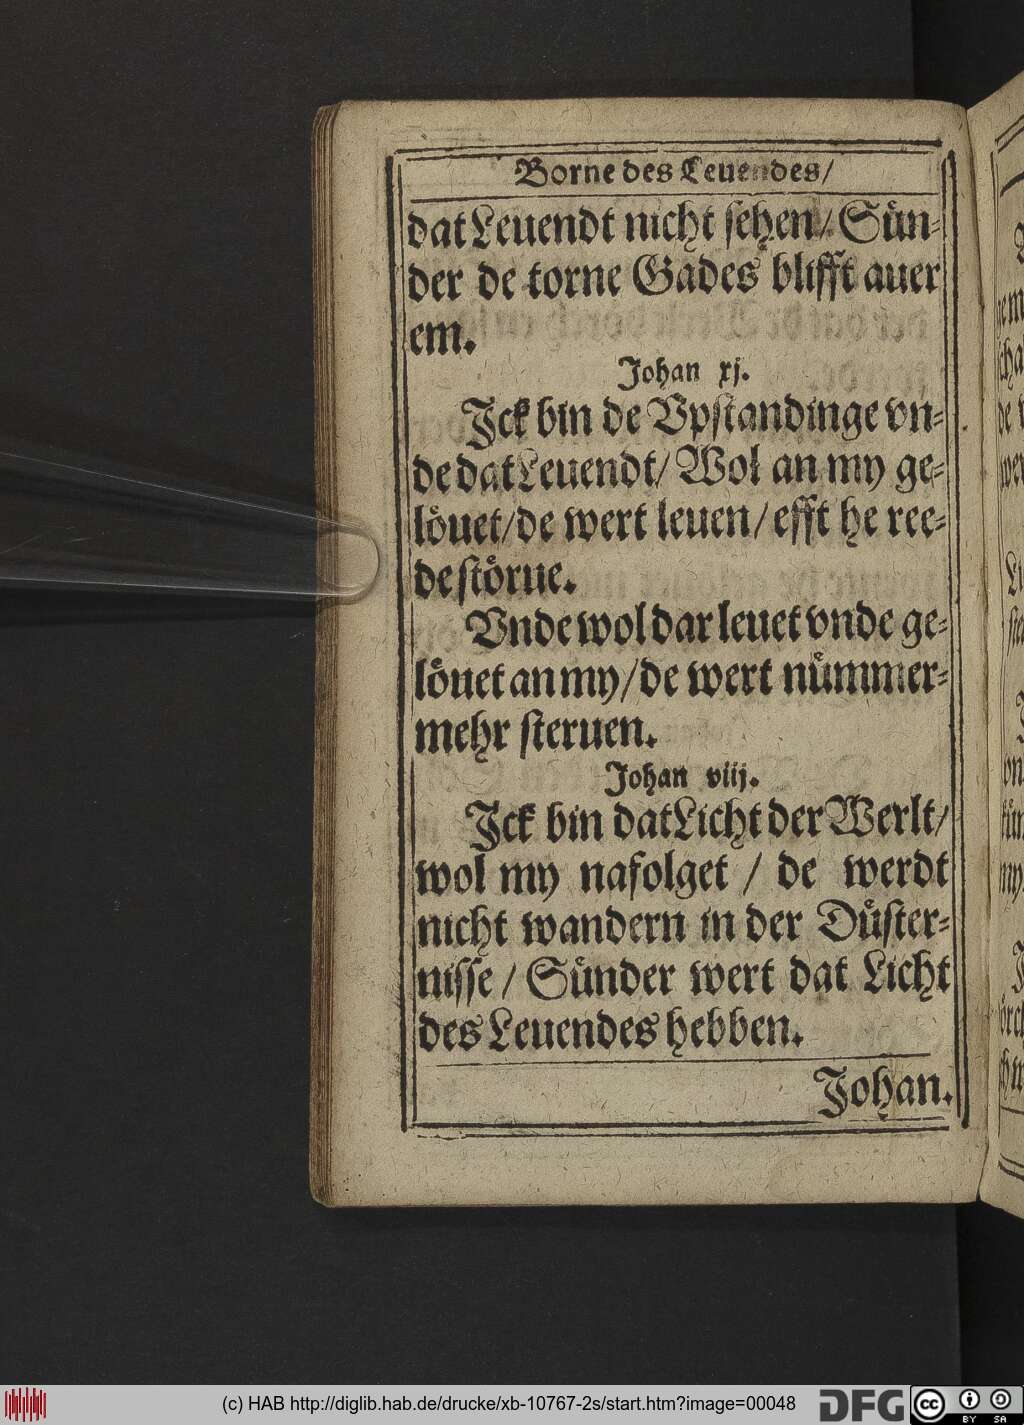 Borne des Leuendes/
dat Leuendt nicht sehen/ Sün-
der de torne Gades blifft auer
em.
Johan xj.
Jck bin de Vpstandinge vn-
de dat Leuendt/ Wol an my ge-
löuet/de wert leuen/ efft he ree-
de störue.
Vnde wol dar leuet vnde ge-
löuet an my/de wert nümmer-
mehr steruen.
Johan viij.
Jck bin dat Licht der Werlt/
wol my nafolget / de werdt
nicht wandern in der Düster-
nisse / Sünder wert dat Licht
des Leuendes hebben.
Johan.
(c) HAB http://diglib.hab.de/drucke/xb-10767-2s/start.htm?image=00048
DFG
cc BY SA